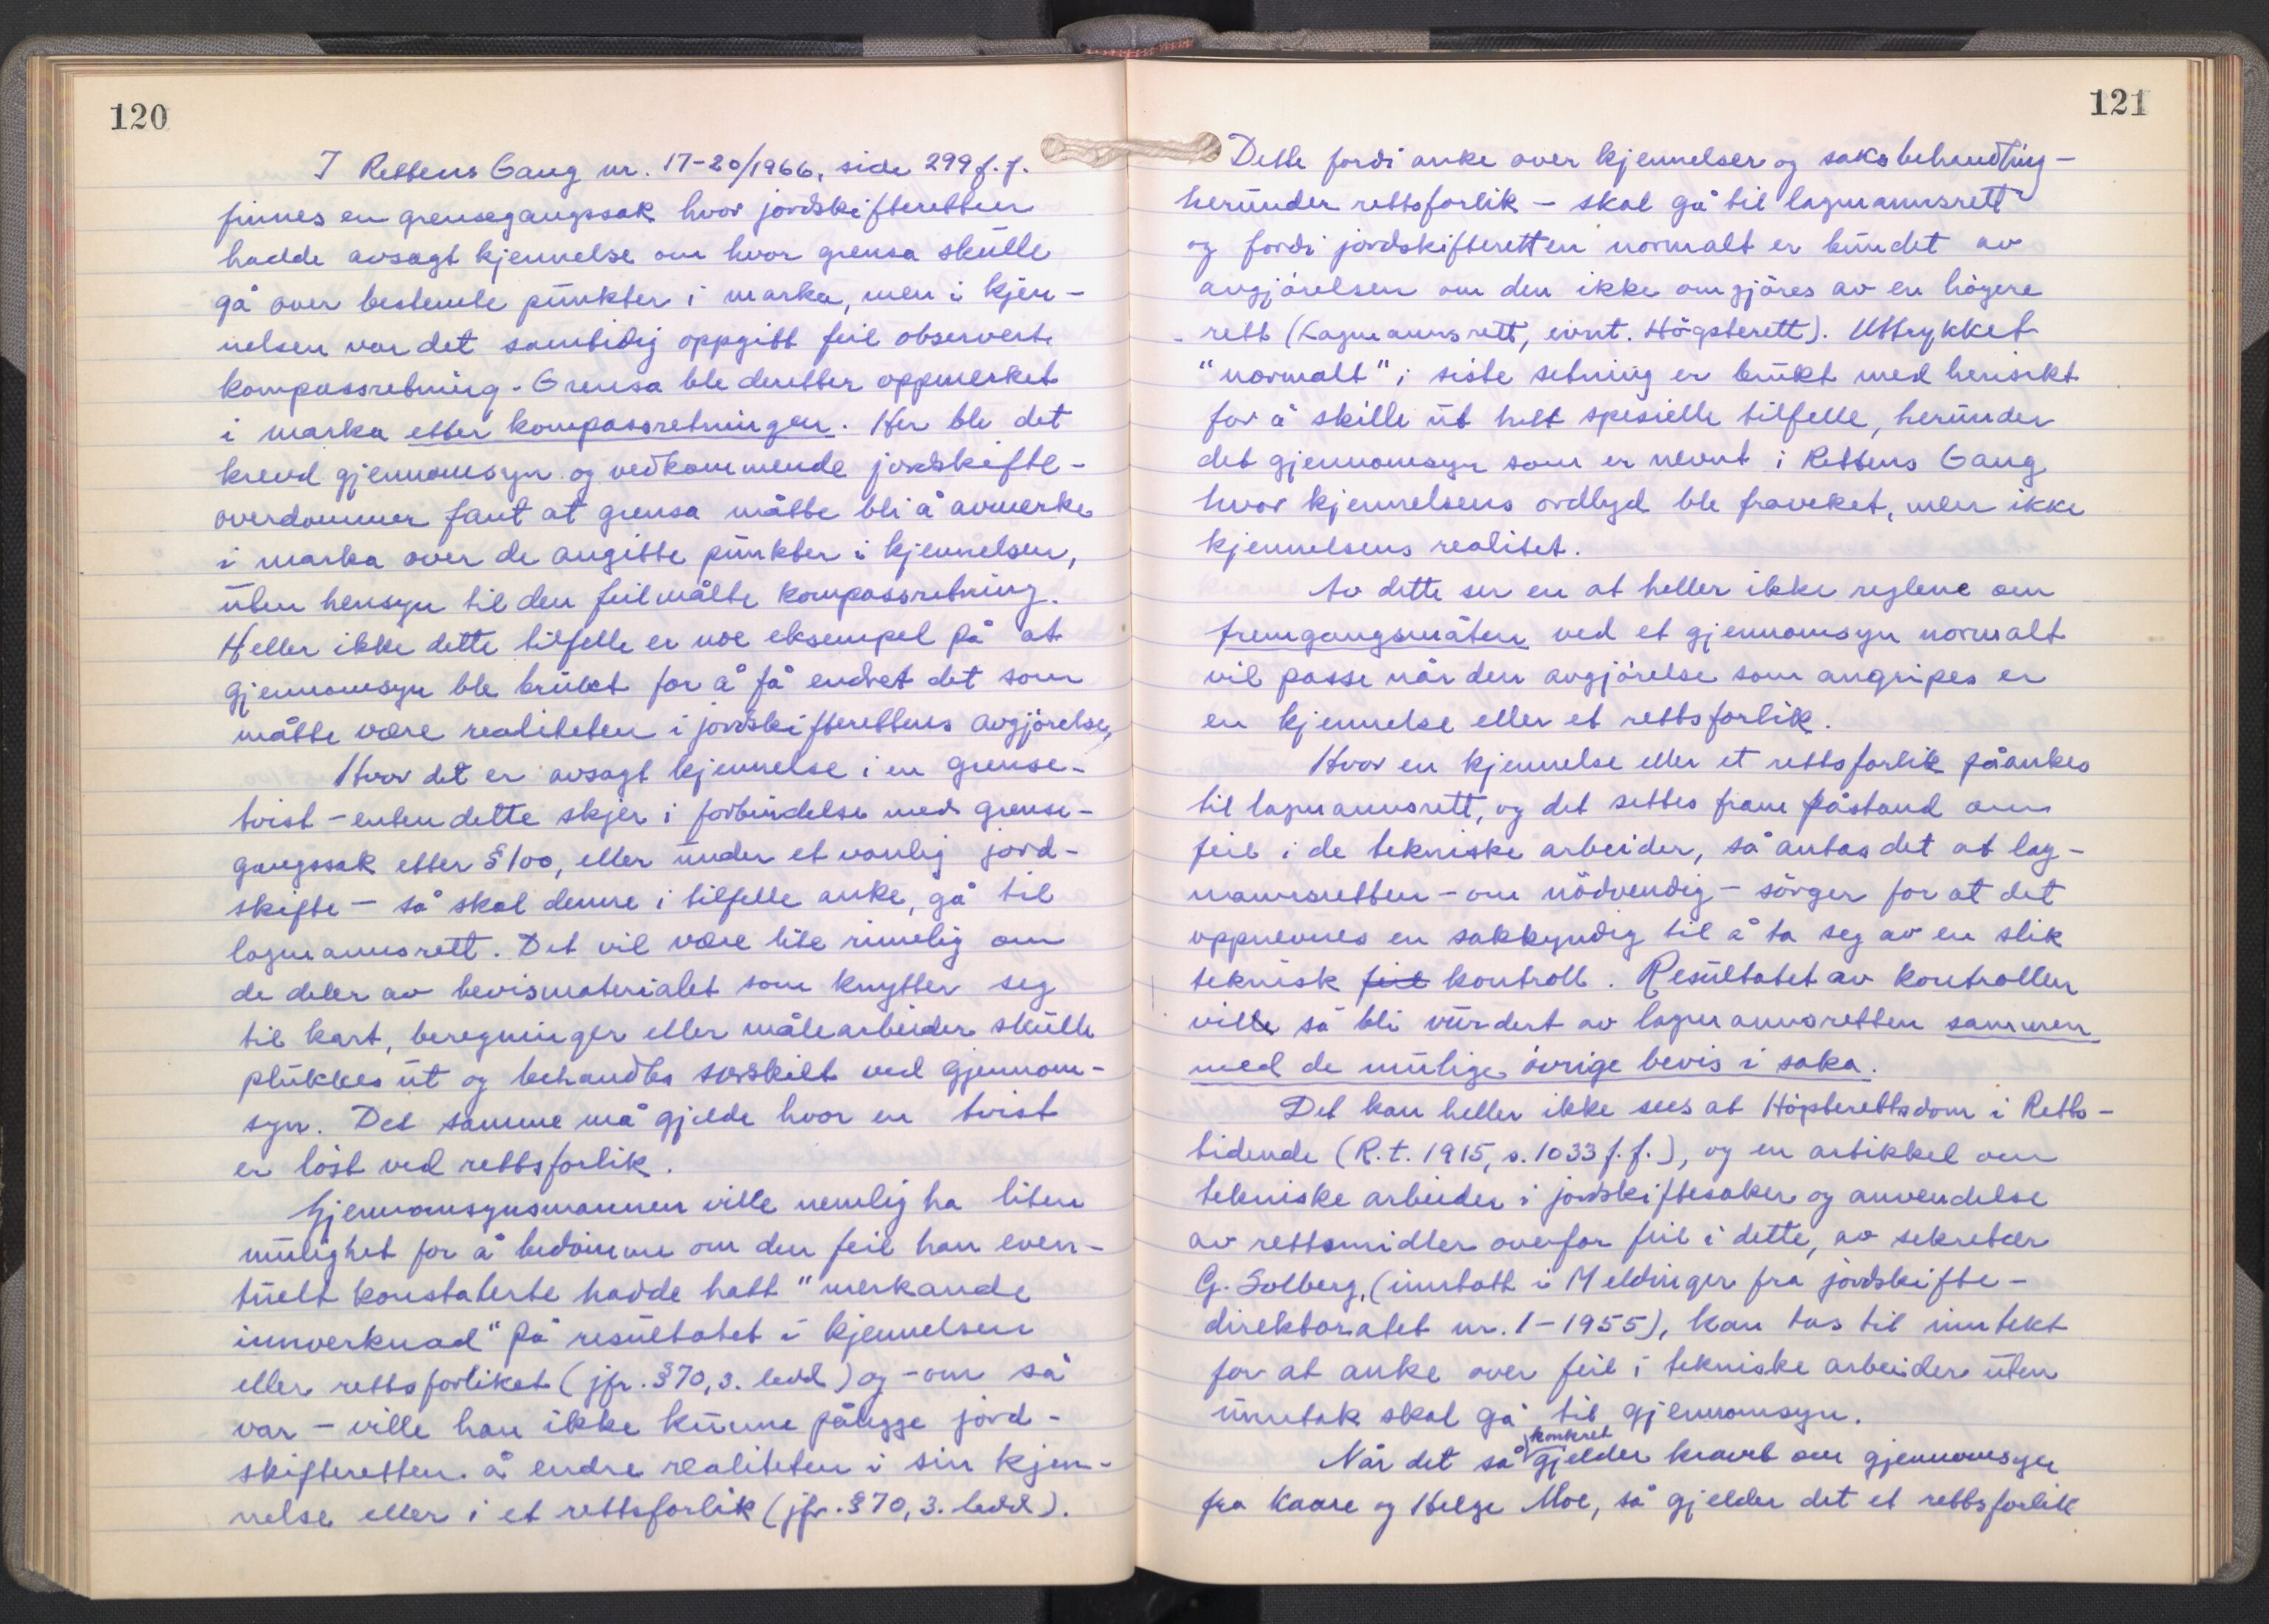 120
I Rettens Gang nr. 17-20/1966, side 299 f.f.
finnes en grensegangssak hvor jordskifteretten
hadde avsagt kjennelse om hvor grensa skulle
gå over bestemte punkter i marka, men i kjen-
nelsen var det samtidig oppgitt feil observert
kompassretning. Grensa ble deretter oppmerket
i marka etter kompassretningen. Her ble det
krevd gjennomsyn og vedkommende jordskifte-
overdommer fant at grensa måtte bli å avmerke
i marka over de angitte punkter i kjennelsen,
uten hensyn til den feilmålte kompassretning.
Heller ikke dette tilfelle er noe eksempel på at
gjennomsyn ble brukt for å få endret det som
måtte være realiteten i jordskifterettens avgjörelse,
Hvor det er avsagt kjennelse i en grense-
tvist - enten dette skjer i forbindelse med grense-
gangssak etter § 100, eller under et vanlig jord-
skifte - så skal denne i tilfelle anke, gå til
lagmannsrett. Det vil være lite rimelig om
de deler av bevismaterialet som knytter seg
til kart, beregninger eller målearbeider skulle
plukkes ut og behandles særskilt ved gjennom-
syn. Det samme må gjelde hvor en tvist
er löst ved rettsforlik.
Gjennomsynsmannen ville nemlig ha liten
mulighet for å bedömme om den feil han even-
tuelt konstaterte hadde hatt "merkande
innverknad" på resultatet i kjennelsen
eller rettsforliket (jfr. § 70, 3. ledd) og - om så
var - ville han ikke kunne pålegge jord-
skifteretten å endre realiteten i sin kjen-
nelse eller i et rettsforlik (jfr. § 70, 3. ledd).
121
Dette fordi anke over kjennelser og saksbehandling -
herunder rettsforlik - skal gå til lagmannsrett
og fordi jordskifteretten normalt er bundet av
avgjörelsen om den ikke omgjöres av en högere
rett (Lagmannsrett, evnt. Högsterett). Uttrykket
"normalt" i siste setning er brukt med hensikt
for å skille ut helt spesielle tilfelle, herunder
det gjennomsyn som er nevnt i Rettens Gang
hvor kjennelsens ordlyd ble fraveket, men ikke
kjennelsens realitet.
Av dette ser en at heller ikke reglene om
fremgangsmåten ved et gjennomsyn normalt
vil passe når den avgjörelse som angripes er
en kjennelse eller et rettsforlik.
Hvor en kjennelse eller et rettsforlik påankes
til lagmannsrett, og det settes fram påstand om
feil i de tekniske arbeider, så antas det at lag-
mannsretten - om nödvendig - sörger for at det
oppnevnes en sakkyndig til å ta seg av en slik
teknisk feil kontroll. Resultatet av kontrollen
ville så bli vurdert av lagmannsretten sammen
med de mulige övrige bevis i saka.
Det kan heller ikke sees at Högsterettsdom i Retts-
tidende (R.t. 1915, s. 1033 f.f.), og en artikkel om
tekniske arbeider i jordskiftesaker og anvendelse
av rettsmidler overfor feil i dette, av sekretær
G. Solberg, (inntatt i Meldinger fra jordskifte-
direktoratet nr. 1-1955), kan tas til inntekt
for at anke over feil i tekniske arbeider uten
unntak skal gå til gjennomsyn.
Når det så konkret gjelder kravet om gjennomsyn
fra Kaare og Helge Moe, så gjelder det et rettsforlik